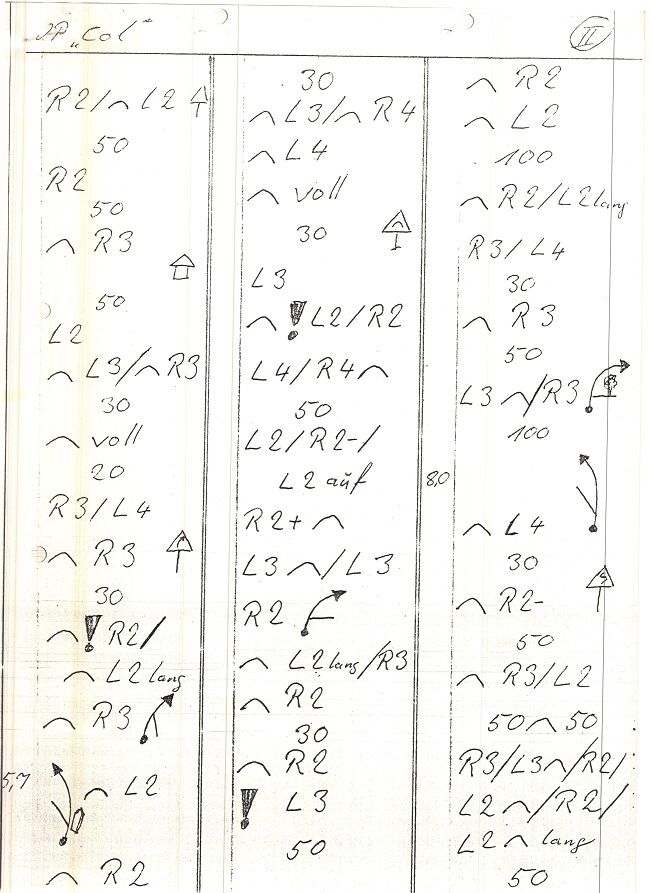 "Col" II
R2/⌒ L2
50
R2
50
⌒ R3
50
L2
⌒ L3/⌒R3
30
⌒ voll
20
R3/L4
⌒ R3
30
⌒ ! R2/
⌒ L2 lang
⌒ R3
5,7 ⌒ L2
⌒ R2
30
⌒ L3/⌒ R4
⌒ L4
⌒ voll
30
L3
⌒ ! L2/R2
L4/R4⌒
50
L2/R2-/
L2 auf
R2+ ⌒
L3 ⌒/L3
R2
⌒ L2 lang/R3
⌒ R2
30
⌒ R2
! L3
50
⌒ R2
⌒ L2
100
⌒ R2/L2 lang
R3/L4
30
⌒ R3
50
L3 ⌒/R3
100
8,0
⌒ L4
30
⌒ R2-
50
⌒ R3/L2
50⌒50
R3/L3⌒/R2/
L2⌒/R2/
L2⌒ lang
50